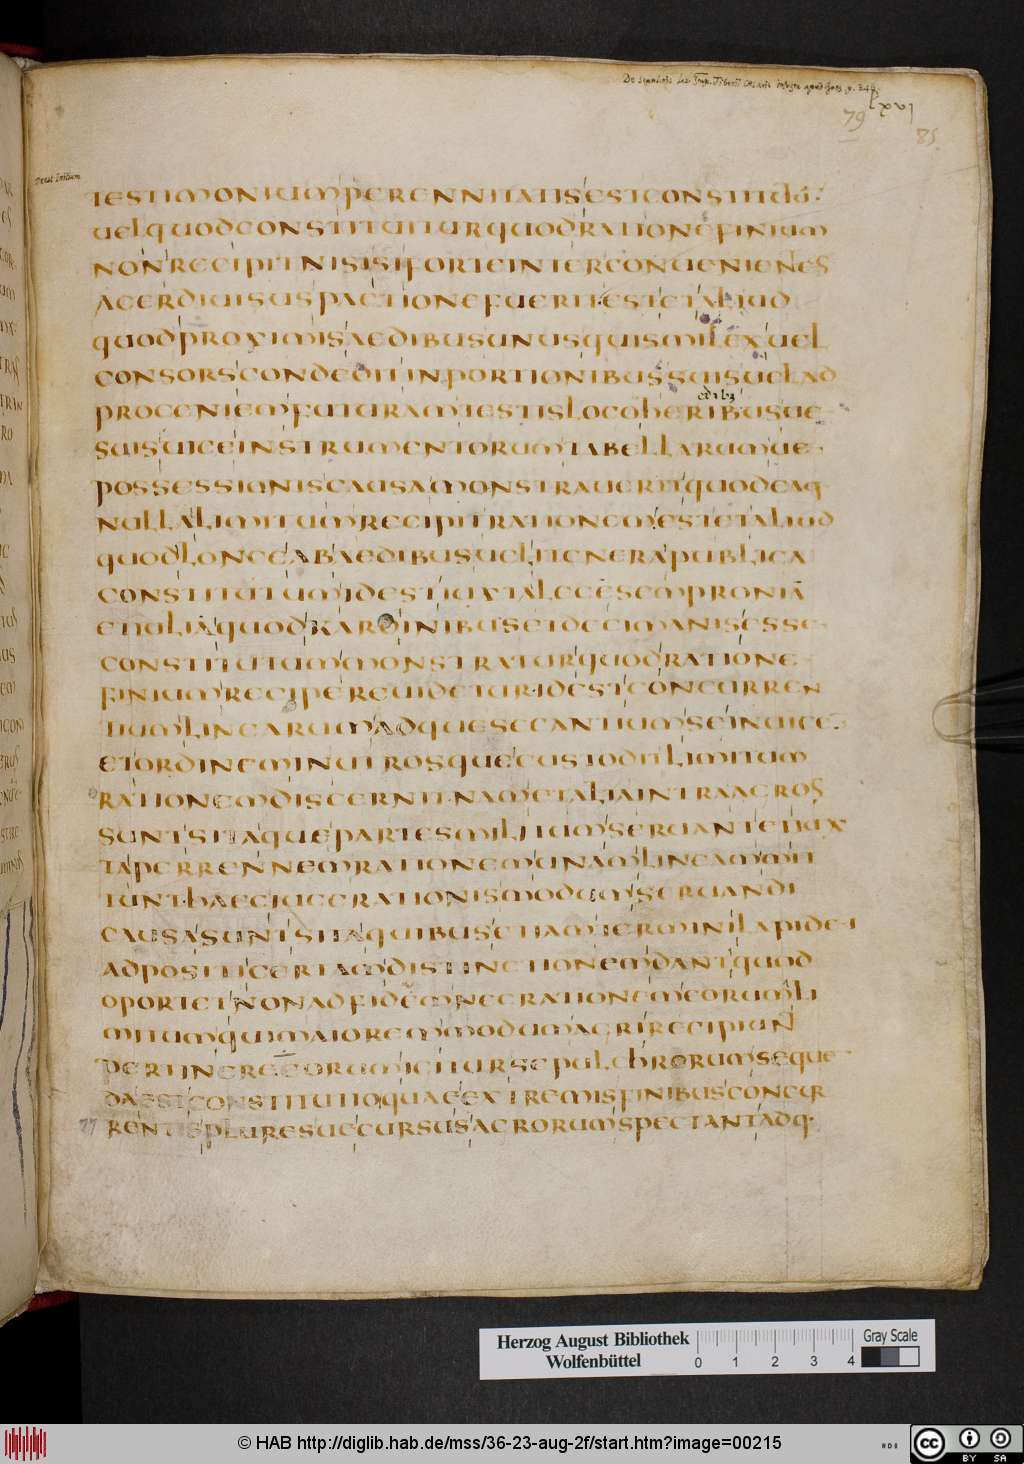 De sepulcris lex Imp. Tiberii Caesaris
LXVI
79
85
Deest Initium
TESTIMONIUMPERENNITATISESTCONSTITUTŪ
UELQUODCONSTITUITURQUODRATIONEFINIUM
NONRECIPITNISISIFORTEINTERCONUENIENTES
ACERDIUISUSPACTIONEFUERITESTETALIUD
QUODPROXIMISAEDIBUSUNUSQUISMILEXUEL
CONSORSCONDEDITINPORTIONIBUSSUISUELAD
PROGENIEMFUTURAMTESTISLOCOHERIBUSUE
SUISUICEINSTRUMENTORUMTABELLARUMUE
POSSESSIONISCAUSAMONSTRAUERITQUODEAQ
NULLALIMITUMRECIPITRATIONEMESTETALIUD
QUODLONGEABAEDIBUSUELITENERAPUBLICA
CONSTITUTUMIDESTIUXTALEGĒSEMPRONIĀ
ETIULIAQUODKARDINIBUSETDECIMANISESSE
CONSTITUTUMMONSTRATURQUODRATIONE
FINIUMRECIPEREUIDETURIDESTCONCURREN
TIUMLINEARUMADQUESECANTIUMSEINUICE
ETORDINEMINUTROSQUECUSTODITLIMITUM
RATIONEMDISCERNITNAMETALIAINTRAAGROS
SUNTSITAQUEPARTESMILITUMSERUANTETIUX
TAPERRENNEMRATIONEMUNAMLINEAMMIT
TUNTHAECIUGERATIONISMODUMSERUANDI
CAUSASUNTSITAQUIBUSETIAMTERMINILAPIDEI
ADPOSITICERTAMDISTINCTIONEMDANTQUOD
OPORTETNONADFIDEMNECRATIONEMEORUMLI
MITUMQUIMAIOREMMODUMAGRIRECIPIUNT
PERTINEREEORUMIGITURSEPULCHRORUMSEQUE
DAESTCONSTITUTIOQUAEEXTREMISFINIBUSCONCUR
RENTISPLURESUECURSUSAGRORUMSPECTANTADQ·
77
Herzog August Bibliothek
Wolfenbüttel
0 1 2 3 4
Gray Scale
© HAB http://diglib.hab.de/mss/36-23-aug-2f/start.htm?image=00215
HAB
cc
BY SA